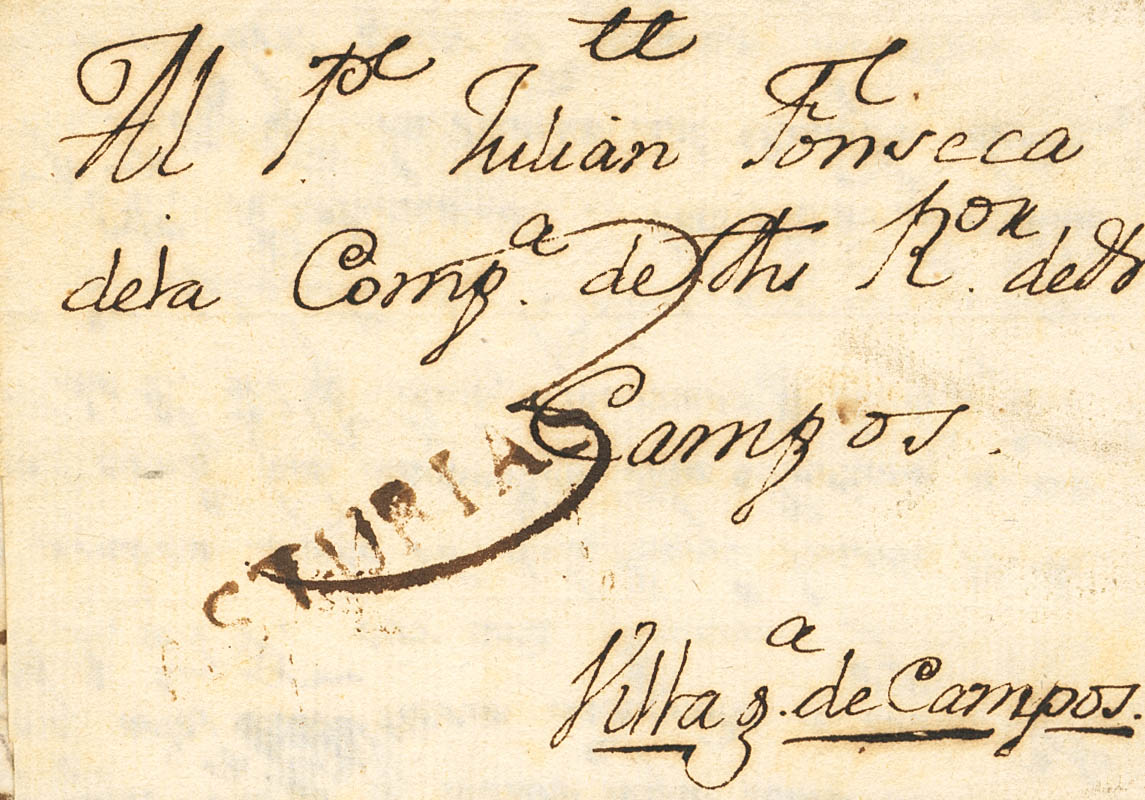 Al Pe Julian Fonseca
dela Compª. de Jhs Ron. de
Campos.
STURIAS
Villagª. de Campos.